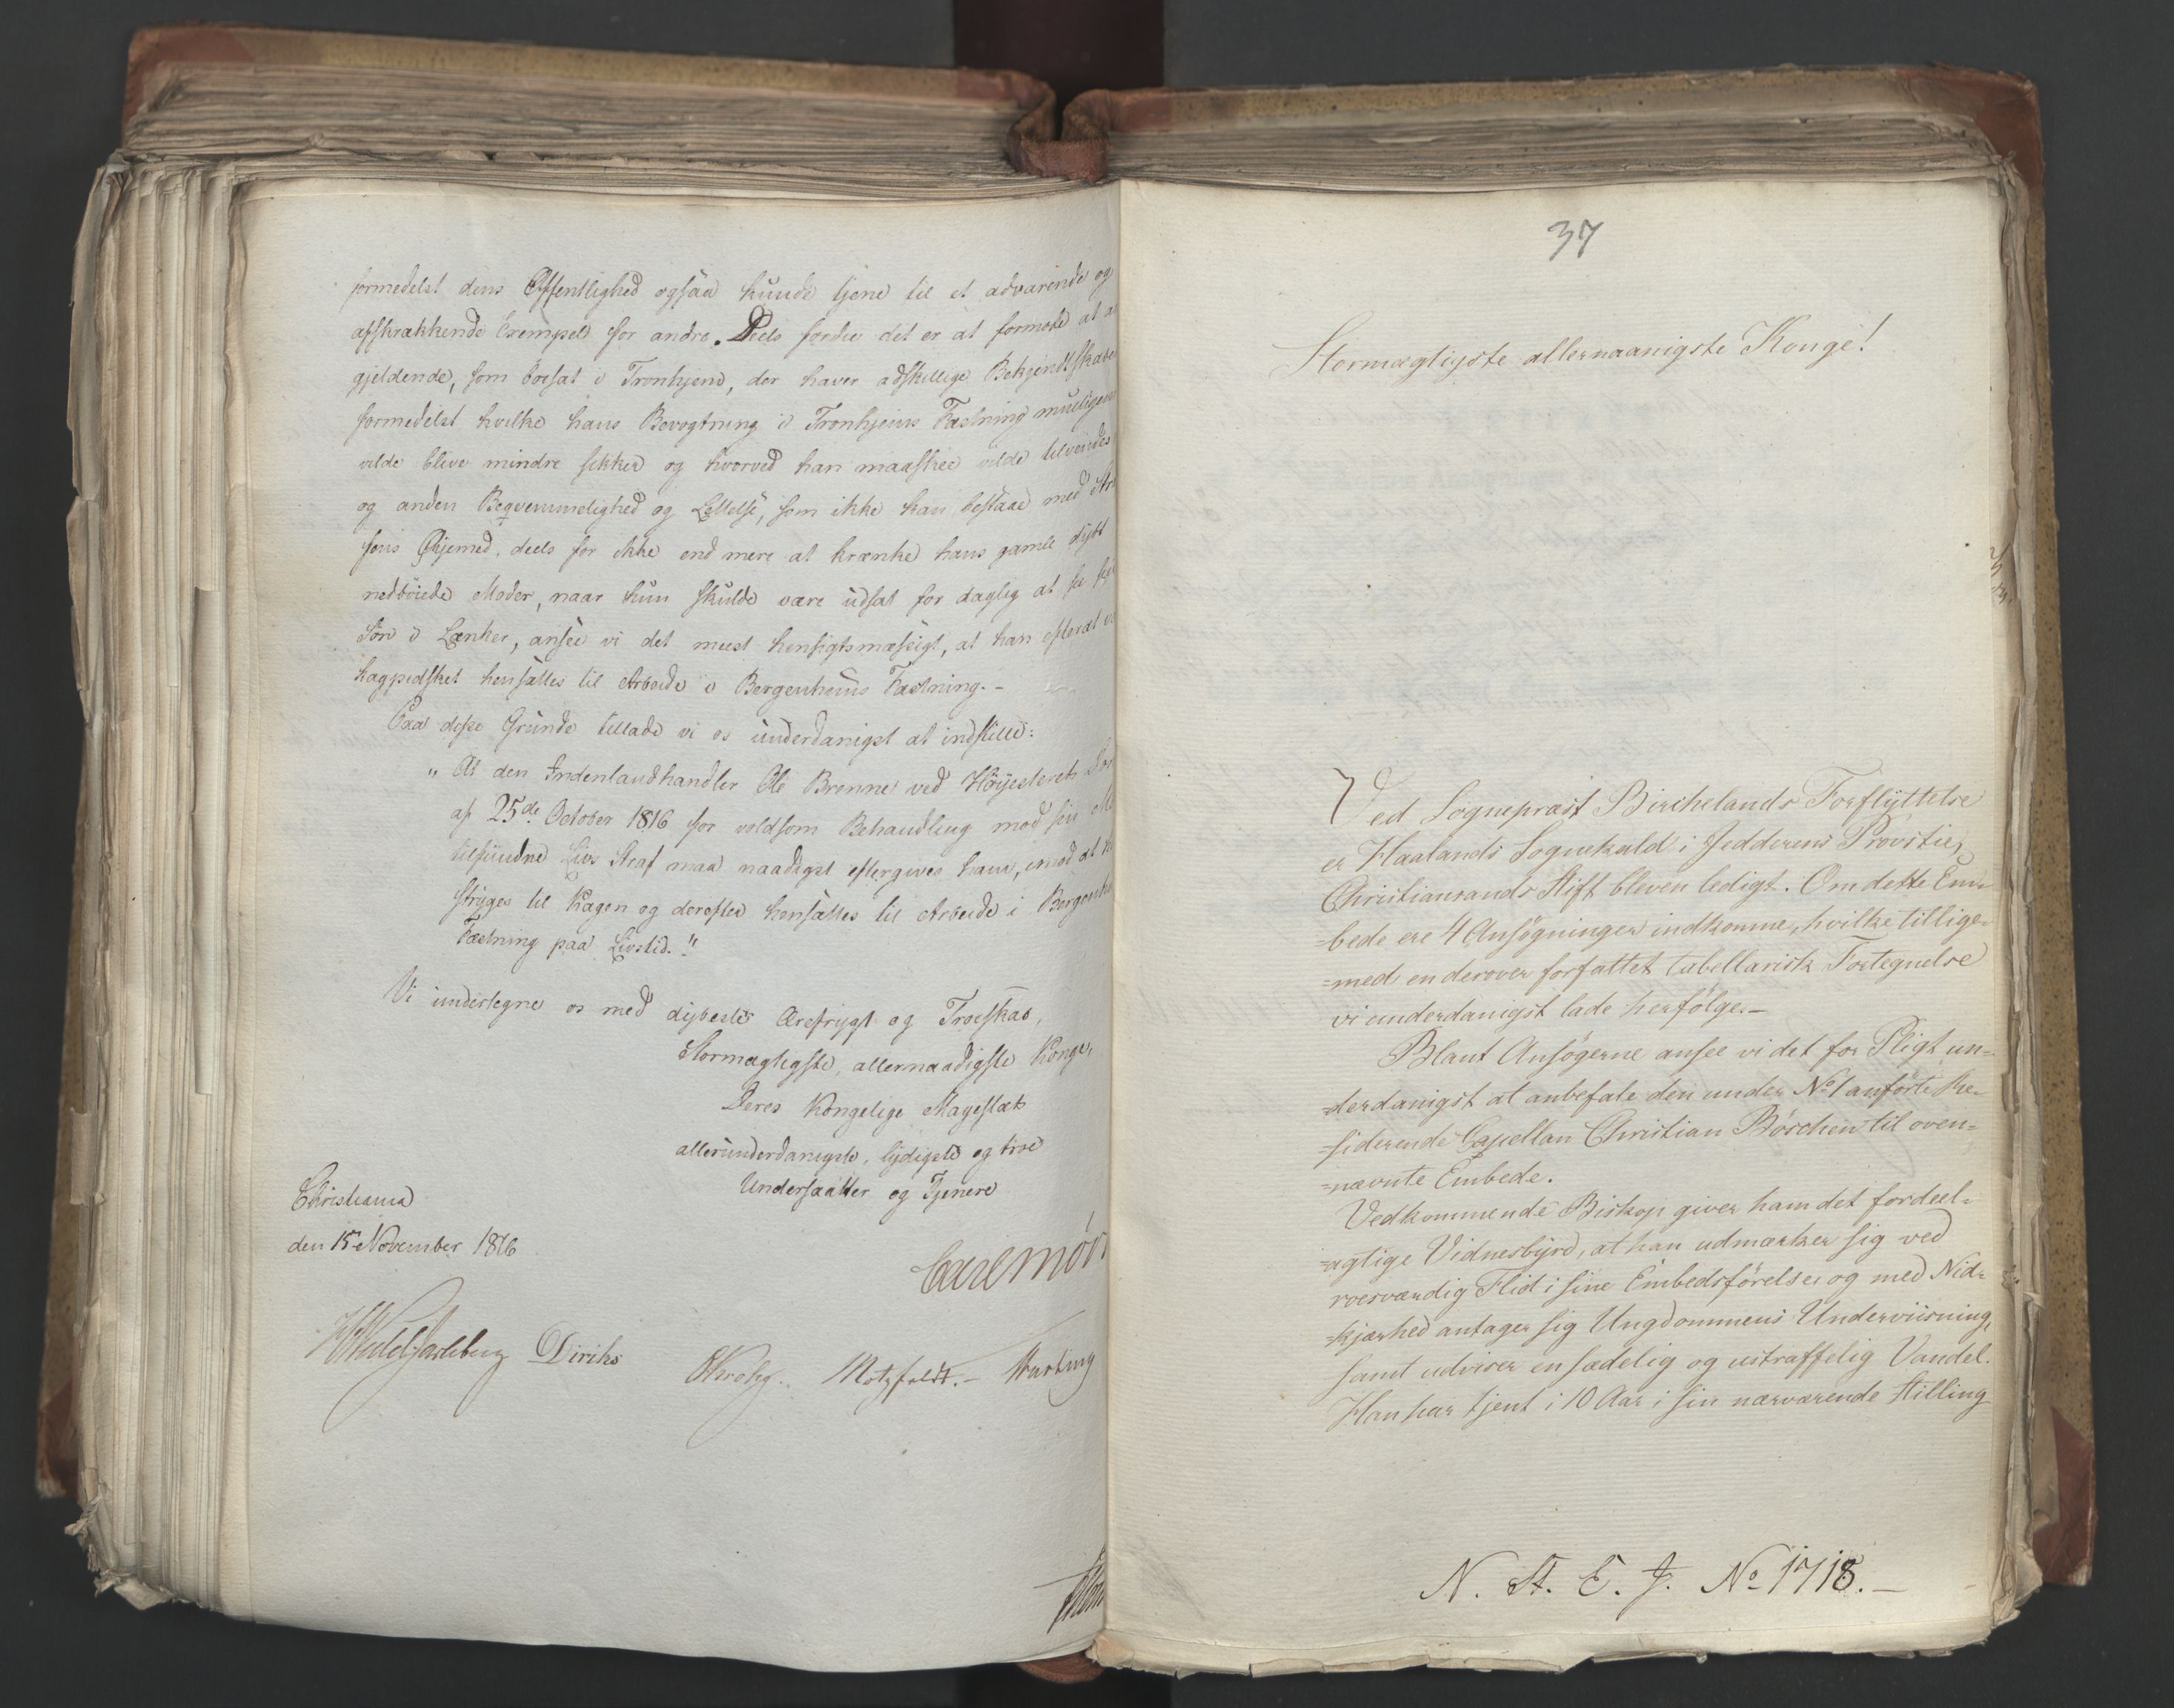 formedelst dens Offentlighed ogsaa kunde tjene til et advarende og
afskrækkende Exempel for andre. Deels fordie det er at formode at
gjeldende, som boesat i Tronhjem, der haver adskillige Bekjendtskaber
formedelst hvilke hans Bevogtning i Tronhjems Fæstning mueligen
vilde blive mindre sikker og hvorved han maaskee vilde tilvendes
og anden Beqvemmelighed og Lettelse, som ikke kan bestaae med
fens Øjemed, deels for ikke end mere at krænke hans gamle dybt
nedböiede Moder, naar hun skulde være udsat for daglig at see
Sön i Lænker, ansee vi det meest hensigtsmæssigt, at han efterat
kagpidsket hensættes til Arbeide i Bergenhuus Fæstning. -
Paa disse Grunde tillade vi os underdanigst at indstille:
" At den Indenlandhandler Ole Brenne ved Höyesterets
af 25de October 1816 for voldsom Behandling mod sin
tilfundne Livs Straf maa naadigst eftergives ham, imod at
stryges til Kagen og derefter hensættes til Arbeide i
Fæstning paa Livstid."
Vi undertegne os med dybeste Ærefrygt og Troeskab,
Stormægtigste, allernaadigste Konge,
Deres Kongelige Majestæts
allerunderdanigste, lydigste og troe
Undersaatter og Tjenere
Christiania
den 15 November 1816
Carl Mör
HWedel Jarlsberg Diriks Krohg. Motzfeldt.-
37
Stormægtigste allernaanigste Konge!
Ved Sognepræst Birchelands Forflyttelse
er Haalands Sognekald i Jedderens Provstie,
Christiansands Stift bleven ledigt. Om dette Em=
=bede ere 4 Ansögninger indkomne, hvilke tillige=
=med en derover forfattet tabellarisk Fortegnelse
vi underdanigst lade herfölge.-
Blant Ansögerne ansee vi det for Pligt un=
=derdanigst at anbefale den under No 1 anförte Re=
=siderende Capellan Christian Börchen til oven=
=nævnte Embede.
Vedkommende Biskop giver ham det fordeel=
=agtige Vidnesbyrd, at han udmærker sig ved
roesværdig Flid i sine Embedsförelser og med Nid=
=kjærhed antager sig Ungdommens Underviisning,
samt udviser en sædelig og ustraffelig Vandel.
Han har tjent i 10 Aar i sin nærværende Stilling
N. St. E. J. No 1718.-